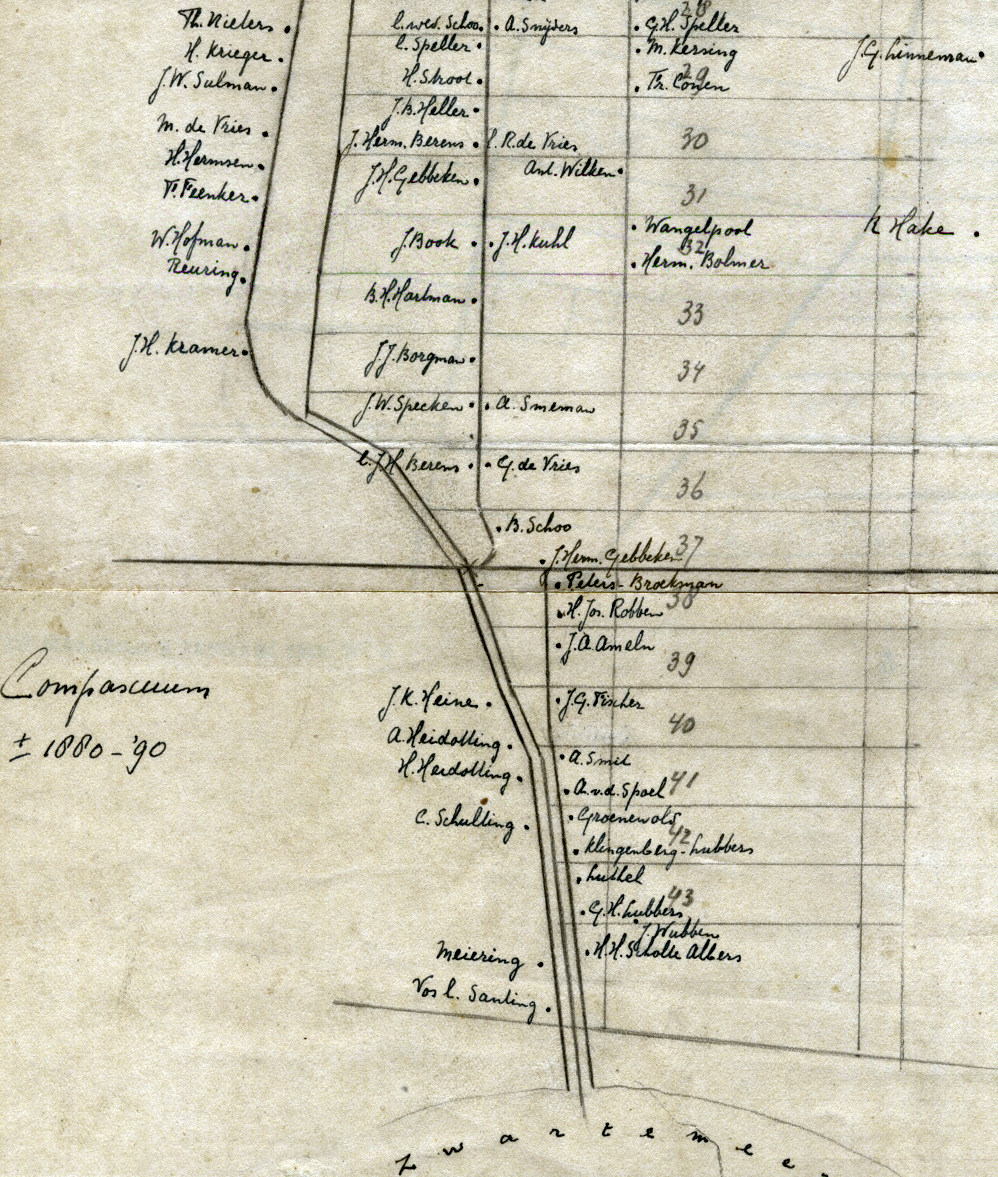 Th. Nieters
H. Krieger
J.W. Sulman
M. de Vries
H. Hermsen
F. Feenker
W. Hofman
Reuring
J.H. Kramer
C. wed. Schoo
C. Speller
H. Stroot
J.B. Heller
J. Herm. Berens
J.H. Gebbeken
J. Book
B.H. Hartman
J.J. Borgman
J.W. Specken
C.J.H. Berens
A. Snijders
R. de Vries
Ant. Wilken
J.H. Kuhl
A. Smeman
G. de Vries
B. Schoo
28
G.H. Speller
M. Kersing
29
Tr. Conen
30
31
Wangelpool
32
Herm. Bolmer
33
34
35
36
37
J. Herm. Gebbeken
Peters-Broekman
38
H. Jos. Robben
J.A. Ameln
39
J.G. Fischer
40
A. Smit
A. v.d. Spoel 41
Groenewold
42
Klingenberg-Lubbers
Luthel
43
G.H. Lubbers
J. Wubben
H.H. Scholte Albers
J.G. Linneman
H Hake
Compascuum
± 1880-'90
J.K. Heine
A. Heidotting
H. Heidotting
C. Schulting
Meiering
Vos C. Santing
Zwartemee